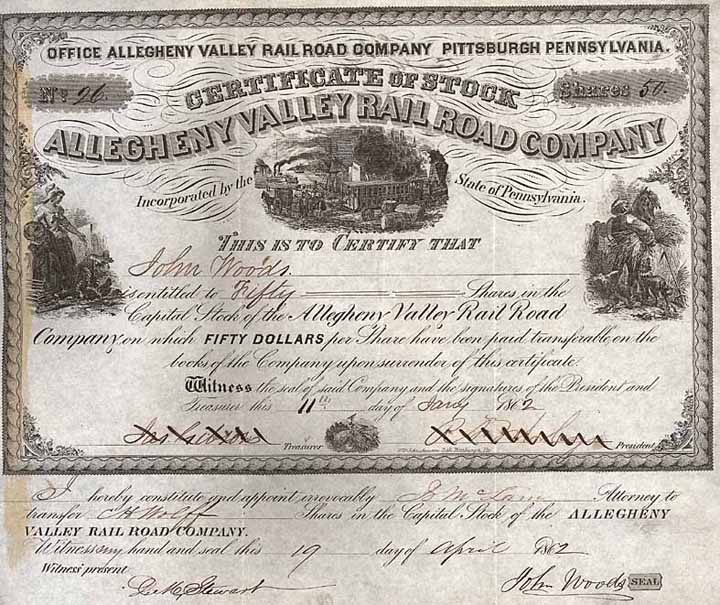 OFFICE ALLEGHENY VALLEY RAIL ROAD COMPANY PITTSBURGH PENNSYLVANIA.
No 26. CERTIFICATE OF STOCK Shares 50.
ALLEGHENY VALLEY RAIL ROAD COMPANY
Incorporated by the State of Pennsylvania.
THIS IS TO CERTIFY THAT
John Woods
is entitled to Fifty Shares in the
Capital Stock of the Allegheny Valley Rail Road
Company, on which FIFTY DOLLARS per Share have been paid transferable on the
books of the Company upon surrender of this certificate.
Witness the seal of said Company and the signatures of the President and
Treasurer this 11th day of Jany 1862
Treasurer President
I hereby constitute and appoint irrevocably Attorney to
transfer Shares in the Capital Stock of the ALLEGHENY
VALLEY RAIL ROAD COMPANY.
Witness my hand and seal this 19 day of April 1862
Witness present
Stewart John Woods SEAL